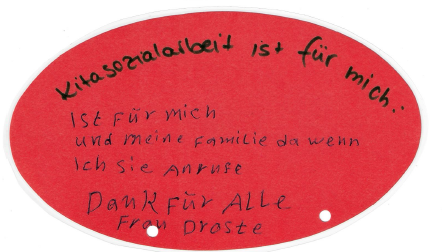 Kitasozialarbeit ist für mich:
Ist Für mich
und meine Familie da wenn
Ich Sie Anrufe
Dank Für Alle
Frau Droste